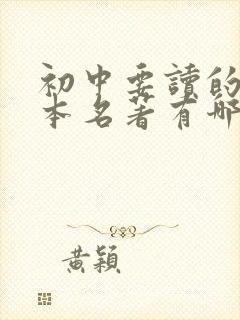 初中要讀的
本名著有哪
黃穎